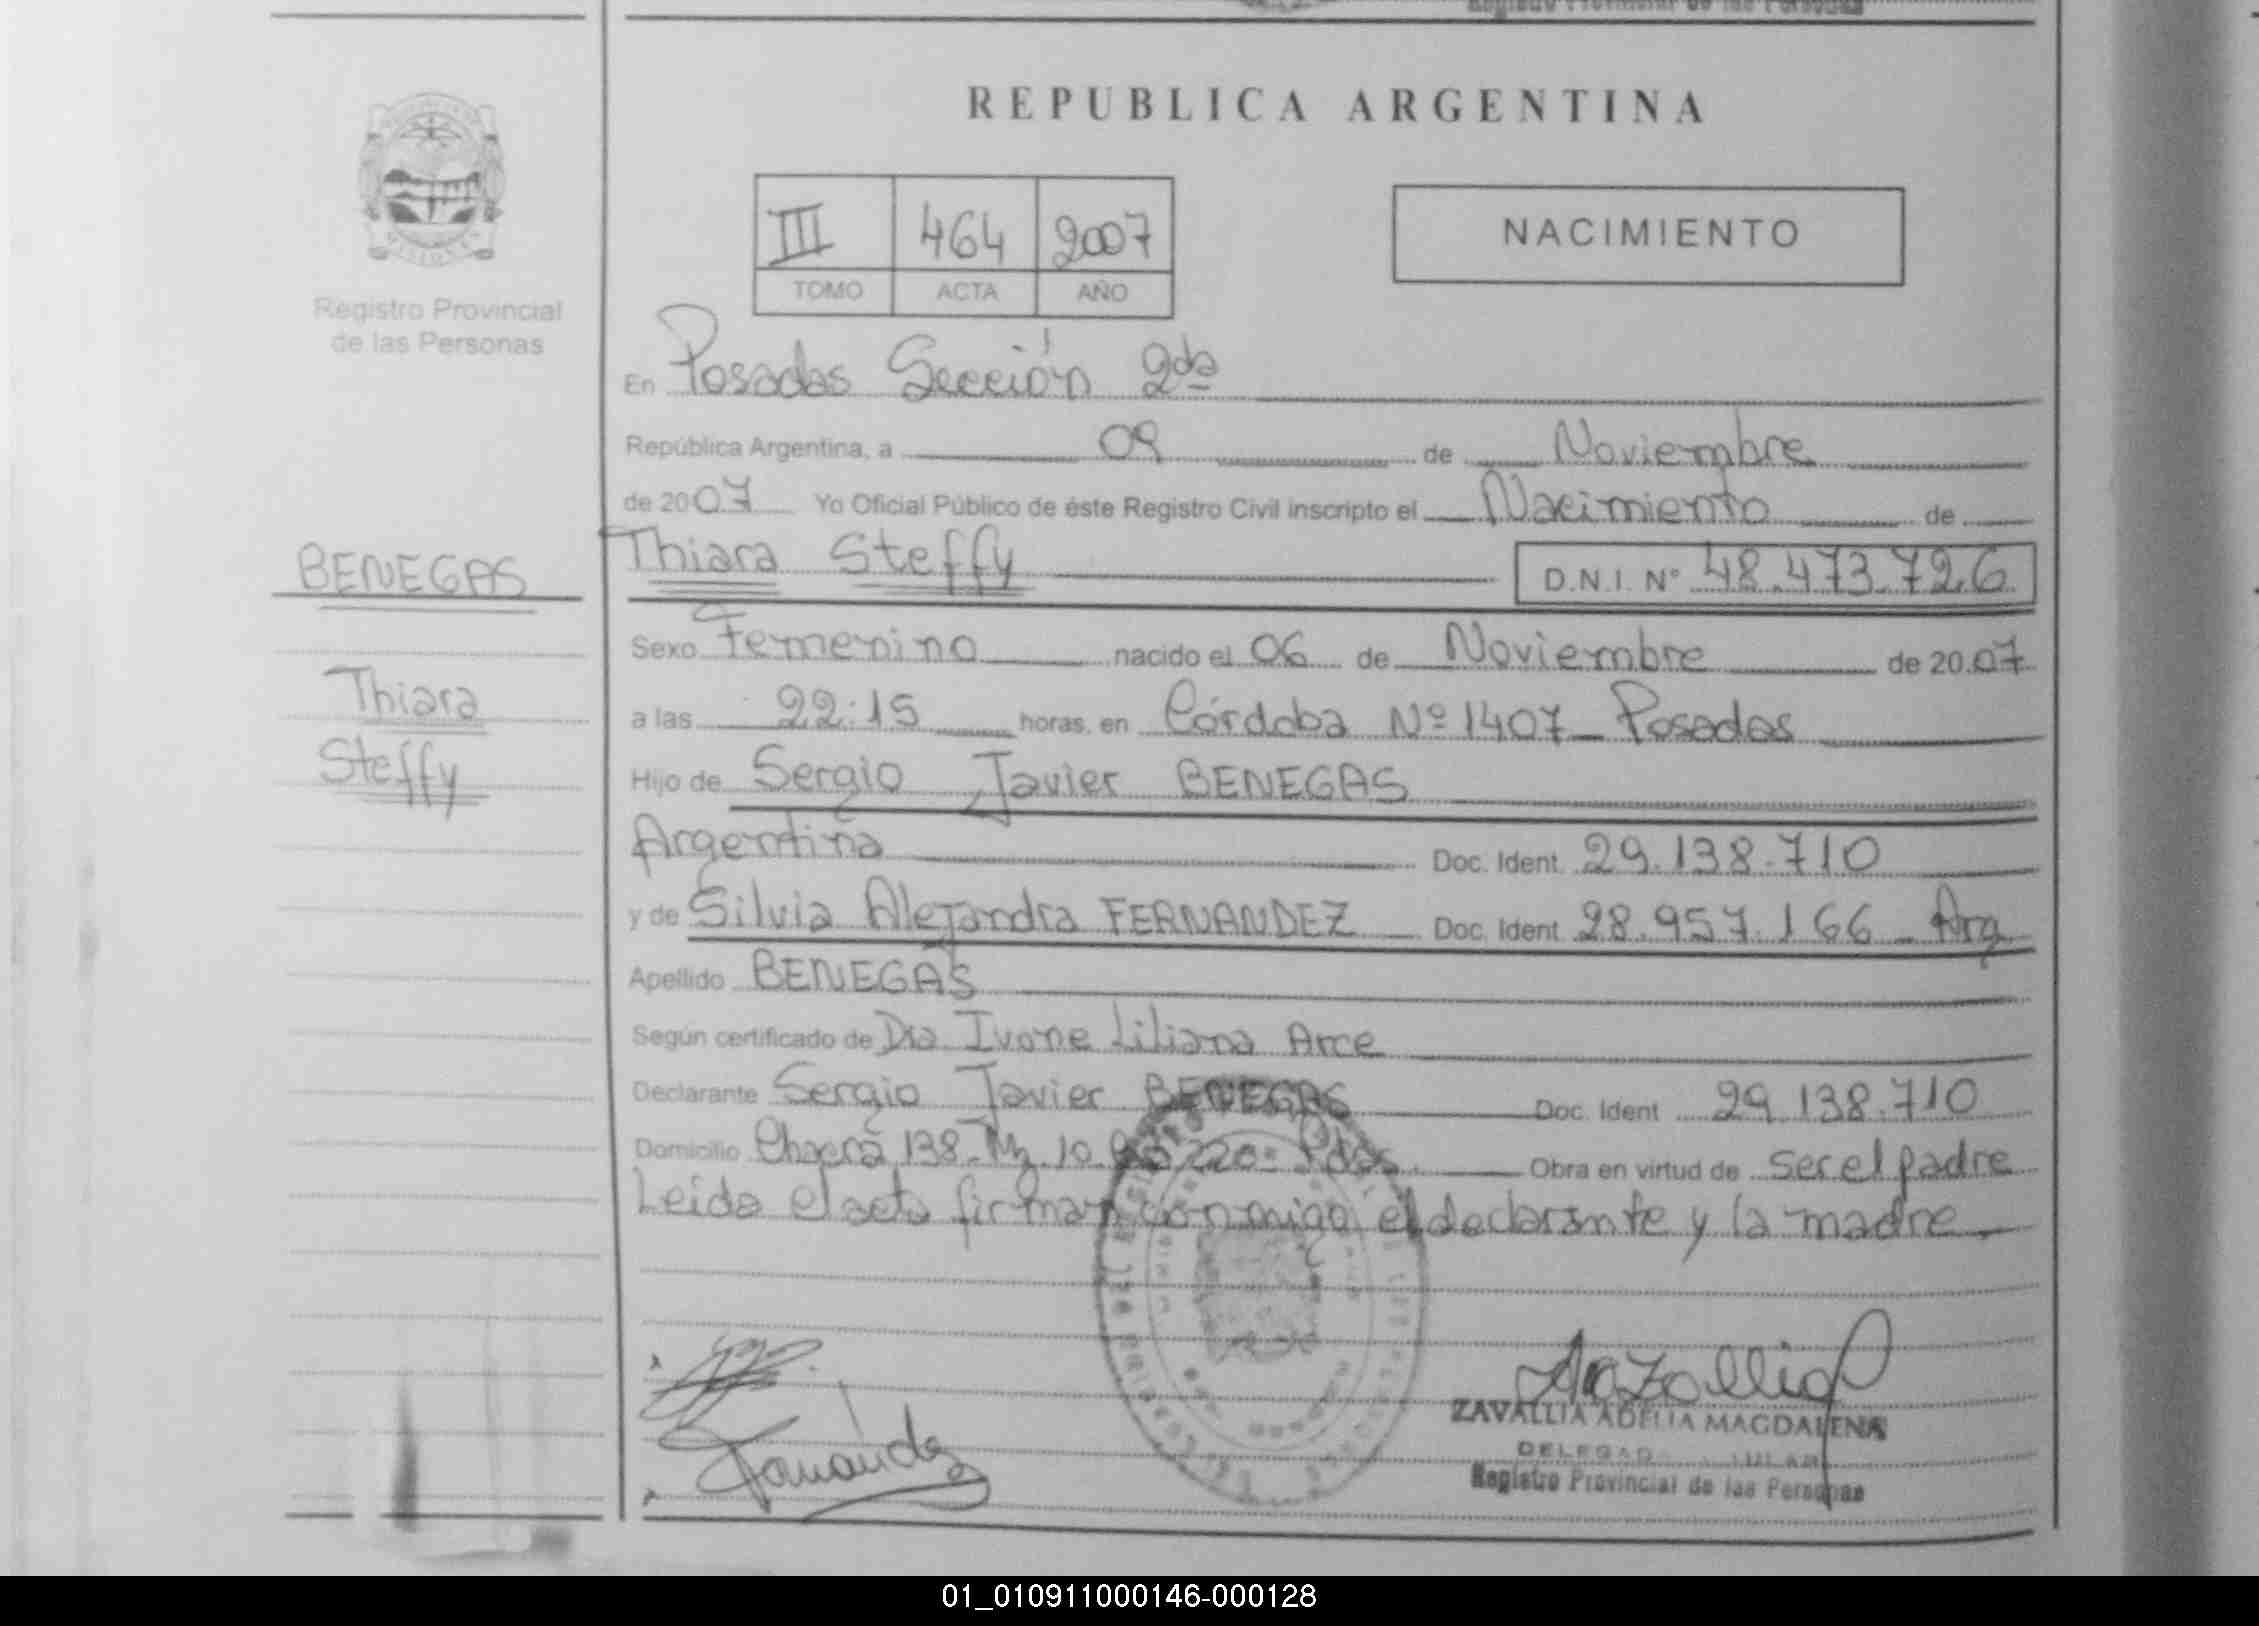 Registro Provincial de las Personas
REPUBLICA ARGENTINA
Registro Provincial
de las Personas
III 464 2007
TOMO ACTA AÑO
NACIMIENTO
En Posadas Sección 2da
República Argentina, a 09 de Noviembre
de 2007 Yo Oficial Público de éste Registro Civil inscripto el Nacimiento de
BENEGAS
Thiara Steffy D.N.I. Nº 48.473.726
Thiara
Steffy
Sexo Femenino nacido el 06 de Noviembre de 2007
a las 22:15 horas, en Córdoba Nº 1407 _ Posadas
Hijo de Sergio Javier BENEGAS
Argentina Doc. Ident. 29.138.710
y de Silvia Alejandra FERNANDEZ Doc. Ident. 28.957.166 _ Arg
Apellido BENEGAS
Según certificado de Dra Ivone Liliana Arce
Declarante Sergio Javier BENEGAS Doc. Ident 29.138.710
Domicilio Chacra 138 Mz 10 220 Pdas Obra en virtud de ser el padre
Leida el acta firman conmigo el declarante y la madre
Fernández
ZAVALLIA ADELIA MAGDALENA
Registro Provincial de las Personas
01_010911000146-000128